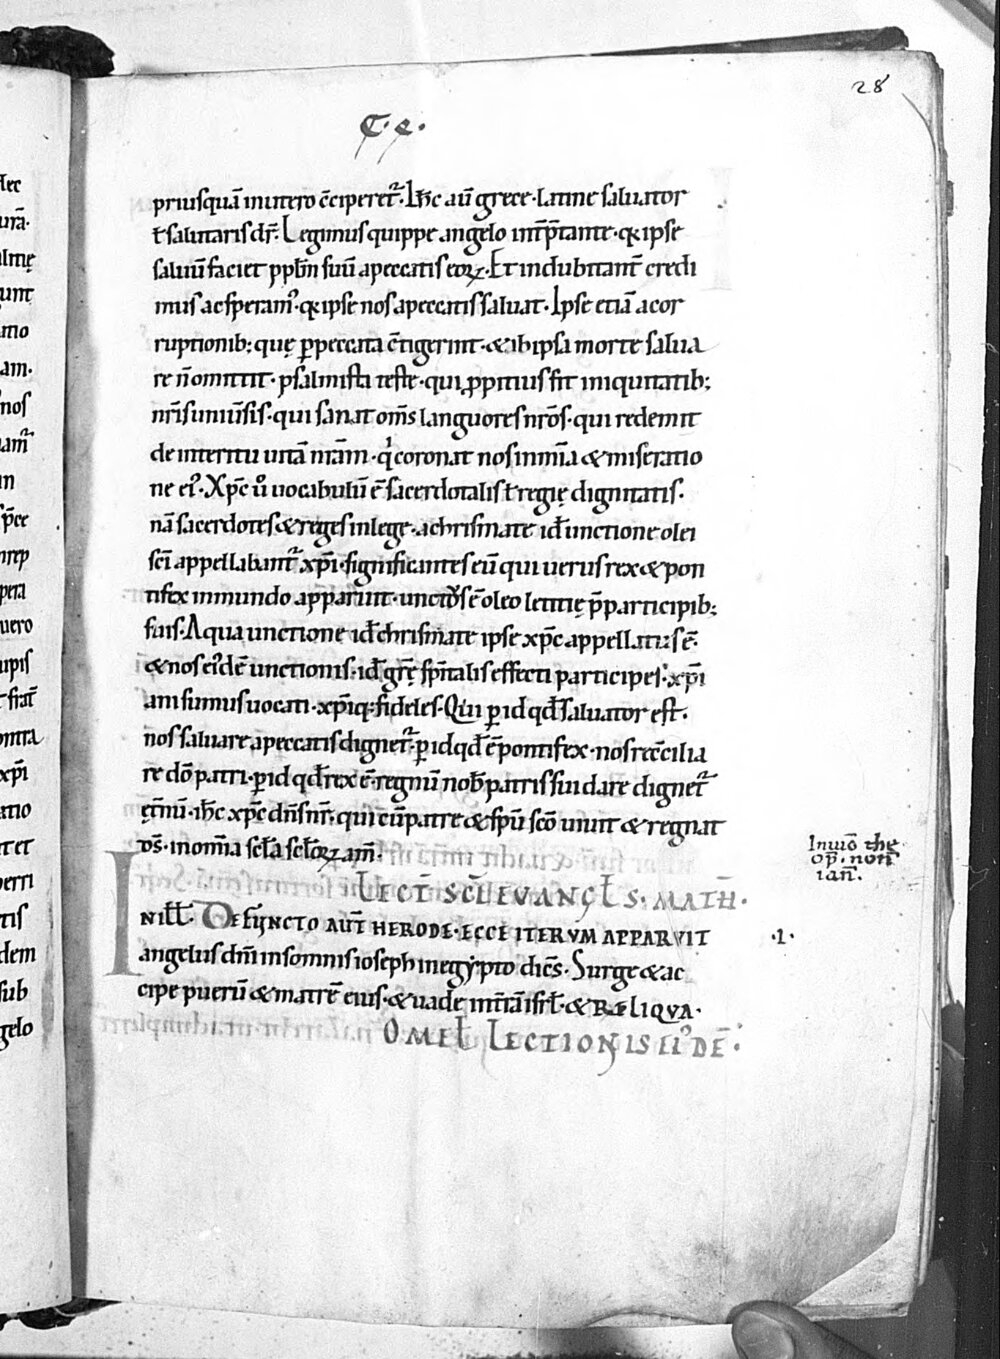 28
C. e.
priusquā in utero c̄ciperet᷑. Ih̅c au̅ grece. Latine saluator
ł salutaris dr̄. Legimus quippe angelo int̄p̄tante. q; ipse
saluū faciet pplm̄ suū a peccatis eoꝝ. Et indubitant̄ credi
mus ac speram᷒. q; ipse nos a peccatis saluat. Ipse etiā a cor
ruptionib; quę p̱ peccata c̄tigerint. & ab ipsa morte salua
re n̄ omittit. psalmista teste. qui ꝓpitius fit iniquitatib;
nr̄is uniūsis. qui sanat om̄s languores nr̄os. qui redemit
de interitu uitā nr̄am. qi coronat nos in mīa & miseratio
ne ei᷒. Xp̄c u̅o uocabulū ē sacerdotalis ł regię dignitatis.
nā sacerdotes & reges in lege. a chrismate id̄ unctione olei
sc̄i appellabant᷑ xp̄i. significantes eū qui uerus rex & pon
tifex in mundo apparuit. unctus ē oleo letitię p̄ participib;
suis. A qua unctione id̄ chrismate ipse xp̄c appellatus ē.
& nos ei᷒dē unctionis. id̄ gr̄ę sp̄italis effecti participes. xp̄i
ani sumus uocati. xp̄iq; fideles. Qui p̱ id qd̄ saluator est.
nos saluare a peccatis dignet᷑. p̱ id qd̄ ē pontifex. nos rec̄cilia
re dō patri. p̱ id qd̄ rex ē. regnū nob̄ patris sui dare dignet᷑
ęt̄nū. ih̅c xp̄c dn̄s nr̄. qui cū patre & sp̄u sc̄o uiuit & regnat
d̄s. in om̄ia sc̄la scłoꝝ am̄.
Inuiō the
op̄. non
ian̄.
LECT̄ SC̄I EVANGŁ S. MATH̄.
IN ILŁ. DEFUNCTO AUT̄ HERODE. ECCE ITERVM APPARVIT
.I.
angelus dn̄i in somnis ioseph in egypto dic̄s. Surge & ac
cipe puerū & matrē eius. & uade int̄rā isrł. & RÆLIQVA.
OMEŁ LECTIONIS EI᷒DĒ.